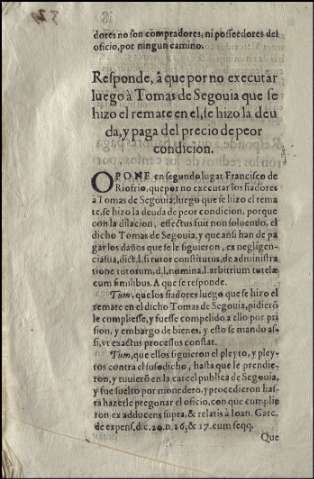 dores no son compradores, ni posseedores del
oficio, por ningun camino.
Responde, à que por no executar
luego à Tomas de Segouia que se
hizo el remate en el, se hizo la deu
da, y paga del precio de peor
condicion.
OPONE en segundo lugar Francisco de
Riofrio, que por no executar los fiadores
à Tomas de Segouia, luego que se hizo el rema
te, se hizo la deuda de peor condicion, porque
con la dilacion, effectus fuit non soluendo, el
dicho Tomas de Segouia, y que ansi han de pa
gar los daños que se le siguieron, ex negligen-
cia sua, dict. l. si tutor constitutus, de administra
tione tutorum. d. l. nomina l. arbitrium tutelæ
cum similibus. A que se responde.
Tum, que los fiadores luego que se hizo el
remate en el dicho Tomas de Segouia, pidierō
le compliesse, y fuesse compelido a ello por pri
sion, y embargo de bienes, y esto se mando as-
si, vt exactus processus constat.
Tum, que ellos siguieron el pleyto, y pley
tos contra el susodicho, hasta que le prendie-
ron, y tuuierō en la carcel publica de Segouia,
y fue suelto por monedero, y procedieron has
ta hazerle pregonar el oficio, con que cumplie
ron ex adducens supra, & relatis à Ioan. Garc.
de expens. dic. 20. n. 26, & 17. cum seqq.
Que